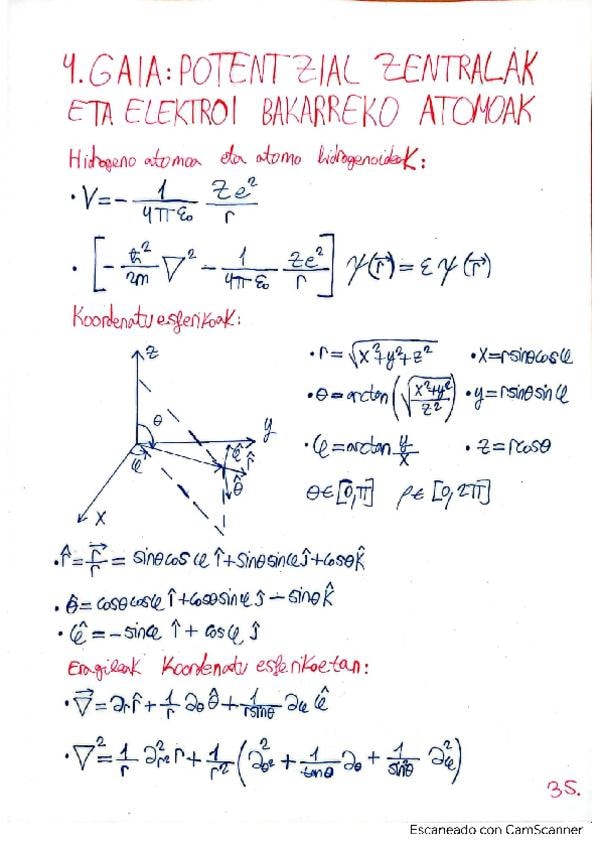 4. GAIA: POTENTZIAL ZENTRALAK
ETA ELEKTROI BAKARREKO ATOMOAK
Hidrogeno atomoa eta atomo hidrogenoideak:
· V = - 1/(4πε₀) Ze²/r
· [-ħ²/2m ∇² - 1/(4πε₀) Ze²/r] ψ(r⃗) = ε ψ(r⃗)
Koordenatu esferikoak:
z
θ
y
φ
φ̂
r̂
θ̂
x
· r = √(x²+y²+z²) · x = r sinθ cosφ
· θ = arctan(√((x²+y²)/z²)) · y = r sinθ sinφ
· φ = arctan y/x · z = r cosθ
θ ∈ [0,π] ρ ∈ [0,2π]
· r̂ = r⃗/r = sinθ cosφ î + sinθ sinφ ĵ + cosθ k̂
· θ̂ = cosθ cosφ î + cosθ sinφ ĵ - sinθ k̂
· φ̂ = - sinφ î + cosφ ĵ
Eragileak koordenatu esferikoetan:
· ∇⃗ = ∂r r̂ + 1/r ∂θ θ̂ + 1/(r sinθ) ∂φ φ̂
· ∇² = 1/r ∂²r² r + 1/r² (∂²θ² + 1/tanθ ∂θ + 1/sin²θ ∂²φ)
35.
Escaneado con CamScanner